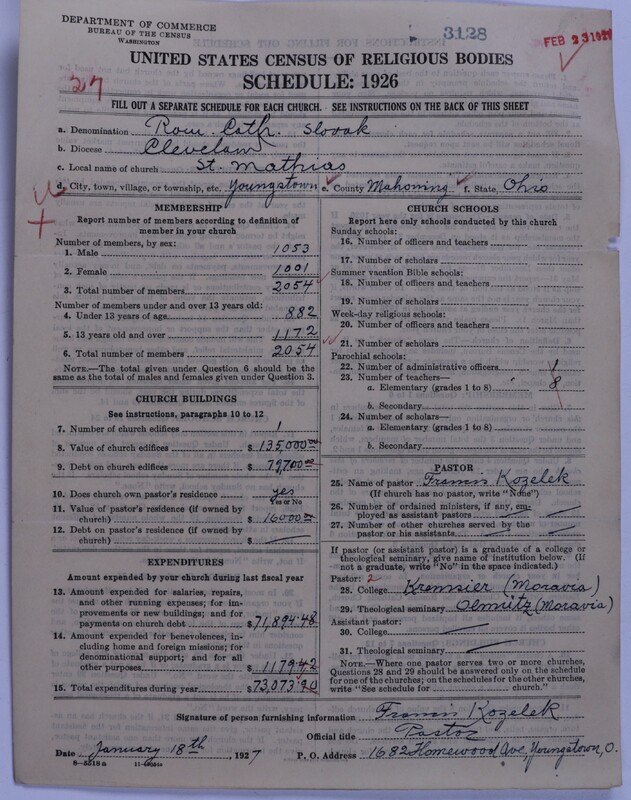 DEPARTMENT OF COMMERCE
BUREAU OF THE CENSUS
WASHINGTON
3128
FEB 23 1927
UNITED STATES CENSUS OF RELIGIOUS BODIES
SCHEDULE: 1926
27
FILL OUT A SEPARATE SCHEDULE FOR EACH CHURCH. SEE INSTRUCTIONS ON THE BACK OF THIS SHEET
a. Denomination Rom. Cath. Slovak
b. Diocese Cleveland
c. Local name of church St. Mathias
d. City, town, village, or township, etc. Youngstown e. County Mahoning f. State Ohio
MEMBERSHIP
Report number of members according to definition of
member in your church
Number of members, by sex:
1. Male 1053
2. Female 1001
3. Total number of members 2054
Number of members under and over 13 years old:
4. Under 13 years of age 882
5. 13 years old and over 1172
6. Total number of members 2054
NOTE.—The total given under Question 6 should be
same as the total of males and females given under Question 3.
CHURCH BUILDINGS
See instructions, paragraphs 10 to 12
7. Number of church edifices 1
8. Value of church edifices $135,000.00
9. Debt on church edifices $ 00
10. Does church own pastor's residence yes
Yes or No
11. Value of pastor's residence (if owned by
church) $ 16000.00
12. Debt on pastor's residence (if owned by
church) $
EXPENDITURES
Amount expended by your church during last fiscal year
13. Amount expended for salaries, repairs,
and other running expenses; for im-
provements or new buildings; and for
payments on church debt $71,894.48
14. Amount expended for benevolences, in-
cluding home and foreign missions; for
denominational support; and for all
other purposes $1179.42
15. Total expenditures during year $73,073.90
CHURCH SCHOOLS
Report here only schools conducted by this church
Sunday schools:
16. Number of officers and teachers
17. Number of scholars
Summer vacation Bible schools:
18. Number of officers and teachers
19. Number of scholars
Week-day religious schools:
20. Number of officers and teachers
21. Number of scholars
Parochial schools:
22. Number of administrative officers 1
23. Number of teachers—
a. Elementary (grades 1 to 8) 8
b. Secondary
24. Number of scholars—
a. Elementary (grades 1 to 8)
b. Secondary
PASTOR
25. Name of pastor Francis Kozelek
(If church has no pastor, write "None")
26. Number of ordained ministers, if any, em-
ployed as assistant pastors
27. Number of other churches served by the
pastor or his assistants
If pastor (or assistant pastor) is a graduate of a college or
theological seminary, give name of institution below. (If
not a graduate, write "No" in the space indicated.)
Pastor: 2
28. College Kremsier (Moravia)
29. Theological seminary Olmütz (Moravia)
Assistant pastor:
30. College
31. Theological seminary
NOTE.—Where one pastor serves two or more churches,
Questions 28 and 29 should be answered only on the schedule
for one of the churches; on the schedules for the other churches,
write "See schedule for church."
Signature of person furnishing information Francis Kozelek
Official title Pastor
Date January 18th, 1927 P. O. Address 1682 Homewood Ave, Youngstown, O.
8—5519a